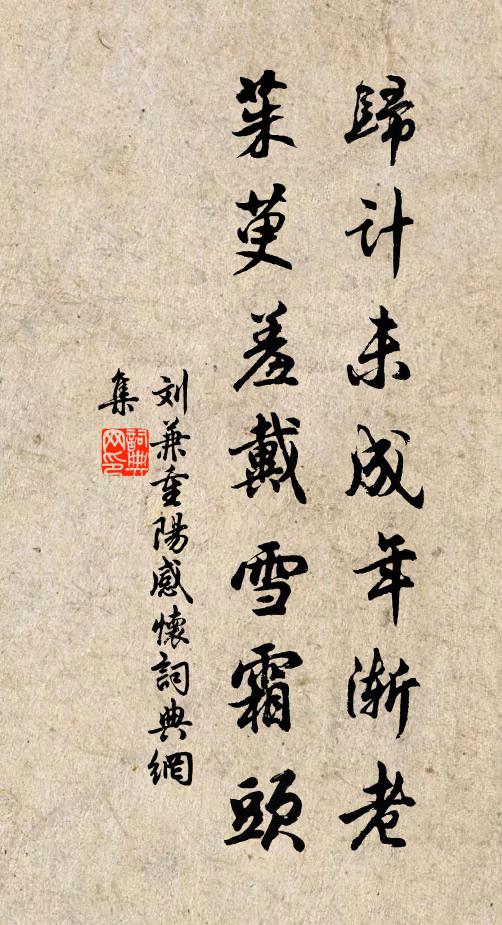 歸計未成年漸老
茱萸羞戴雪霜頭
刘兼重陽感懷詞典網
集
詞典
网印